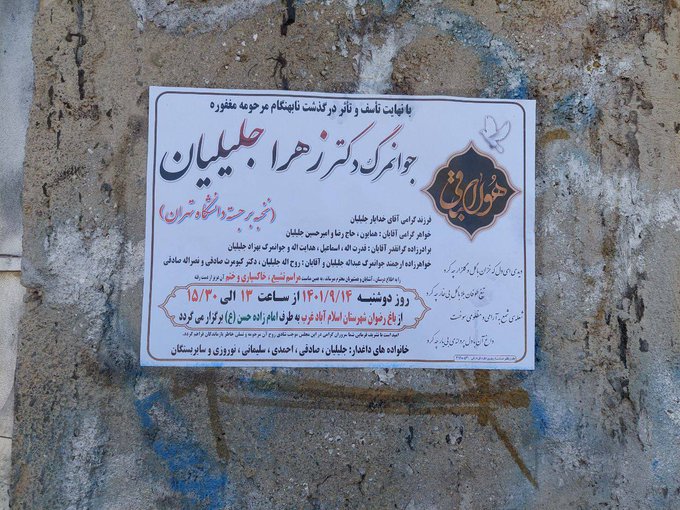 با نهایت تأسف و تأثر درگذشت نابهنگام مرحومه مغفوره
جوانمرگ دکتر زهرا جلیلیان
(نخبه برجسته دانشگاه تهران)
هوالباقی
فرزند گرامی آقای خدایار جلیلیان
خواهر گرامی آقایان : همایون ، حاج رضا و امیرحسین جلیلیان
برادرزاده گرانقدر آقایان : قدرت اله ، اسماعیل ، هدایت اله و جوانمرگ بهزاد جلیلیان
خواهرزاده ارجمند جوانمرگ عبداله جلیلیان و آقایان : روح اله جلیلیان ، دکتر کیومرث صادقی و نصراله صادقی
را به اطلاع دوستان ، آشنایان و همشهریان محترم میرساند ، به همین مناسبت مراسم تشییع ، خاکسپاری و ختم آن عزیز از دست رفته
روز دوشنبه ۱۴۰۱/۹/۱۴ از ساعت ۱۳ الی ۱۵/۳۰
از باغ رضوان شهرستان اسلام آباد غرب به طرف امام زاده حسن (ع) برگزار می گردد
است با تشریف فرمایی شما سروران گرامی در این مجلس موجب شادی روح آن مرحومه و تسلی خاطر بازماندگان فراهم گردد.
خانواده های داغدار: جلیلیان ، صادقی ، احمدی ، سلیمانی ، نوروزی و سایر بستگان
دیدی ای دل که خزان با گل و گلزار چه کرد